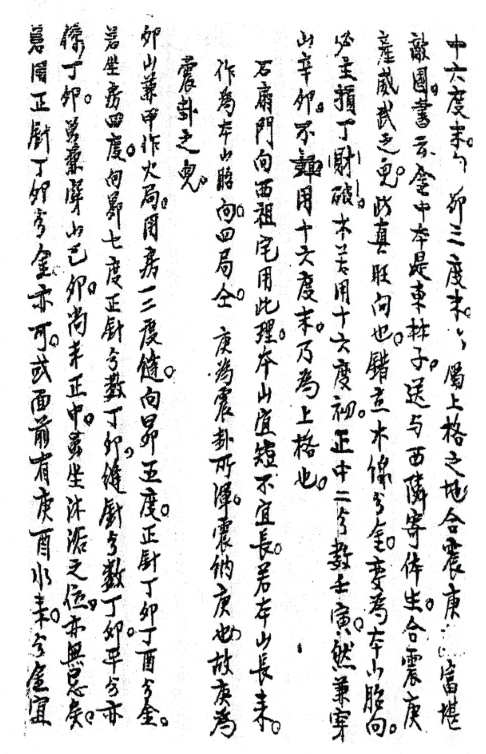 中六度末。㇉卯三度末。㇉屬上格之地合震庚 富堪
敵國。書云金中本是東林子。送与西隣寄体生。合震庚
產威武之兒。此真旺向也。錯点木係分金。變為本山胎向。
必主損丁財破。木若用十六度初。正中二分数壬寅。然兼穿
山辛卯。不 用十六度末。乃為上格也。
石扇門向西祖宅用此理。本山宜短不宜長。若本山長来。
作為本山胎向。四局仝 庚為震卦所渾。震納庚也。故庚為
震卦之兒。
卯山兼甲作火局。用房一二度。縫向昴五度。正針丁卯丁酉分金。
若坐房四度。向昴七度正針分数丁卯。縫針分数丁卯。平分亦
係丁卯。若兼穿山己卯。尚未正中。虽坐沐浴之位。亦無忌矣。
若用正針丁卯分金亦可。或面前有庚酉水来。分金宜